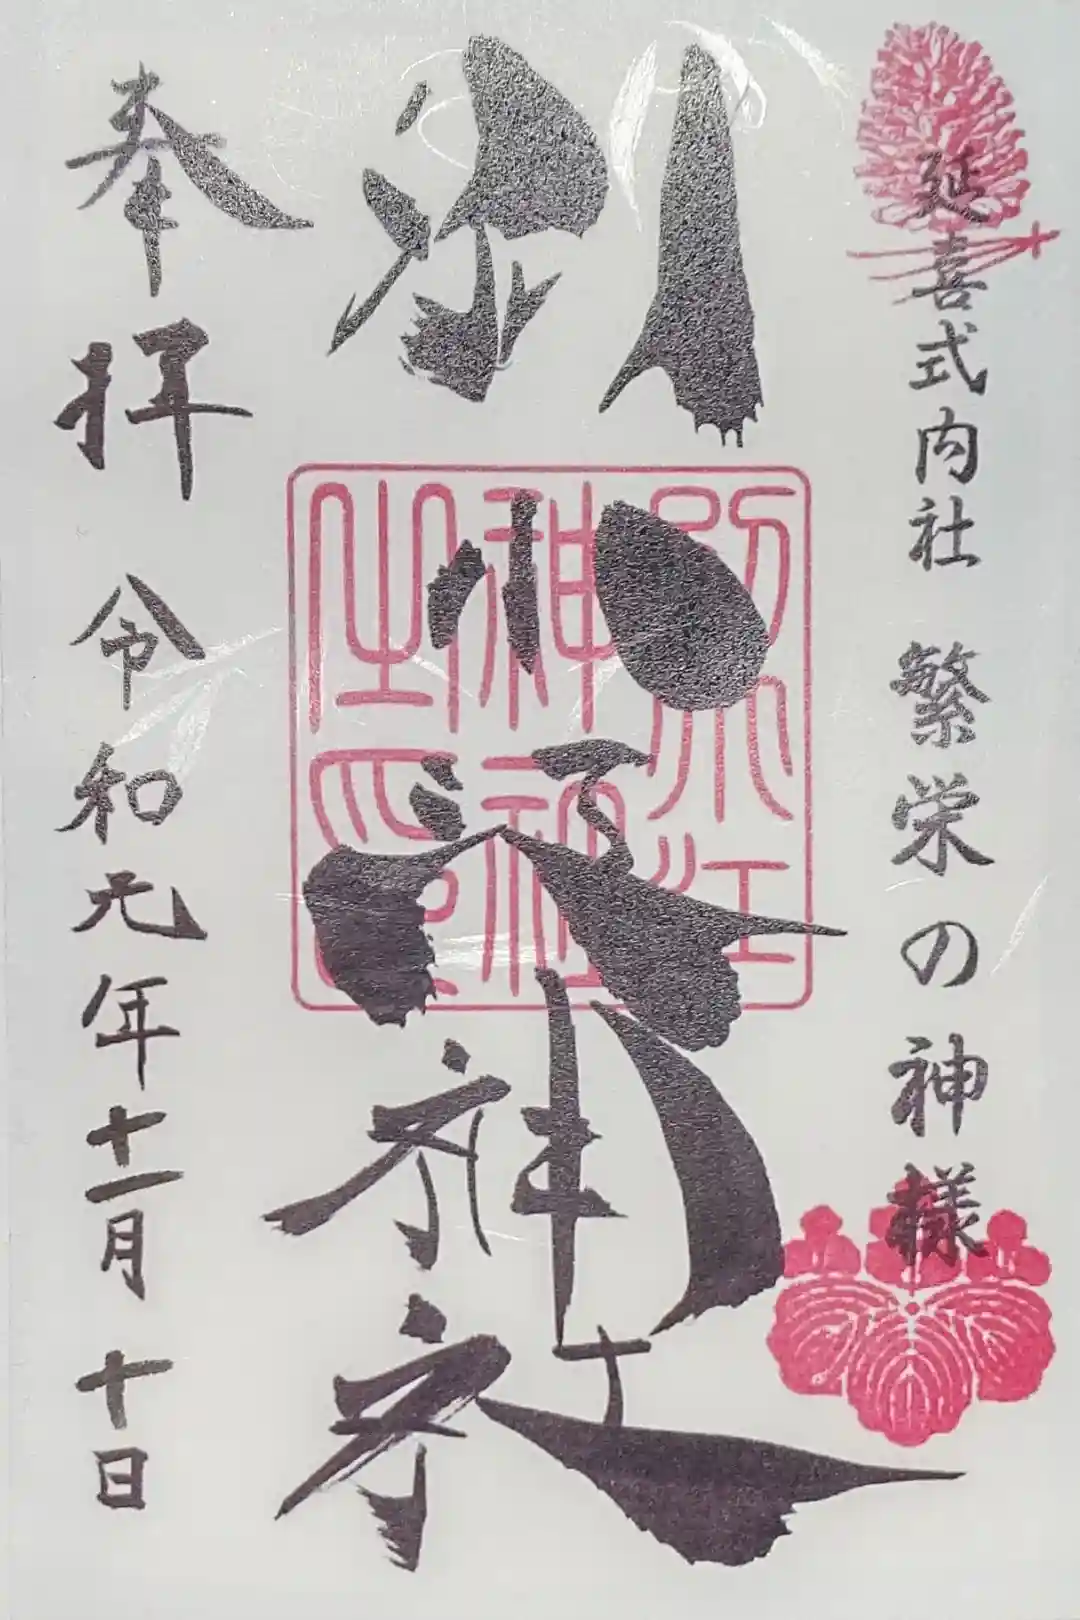 延喜式内社 繁栄の神様
別小江神社
別小江神社之印
奉拝 令和元年十一月十日